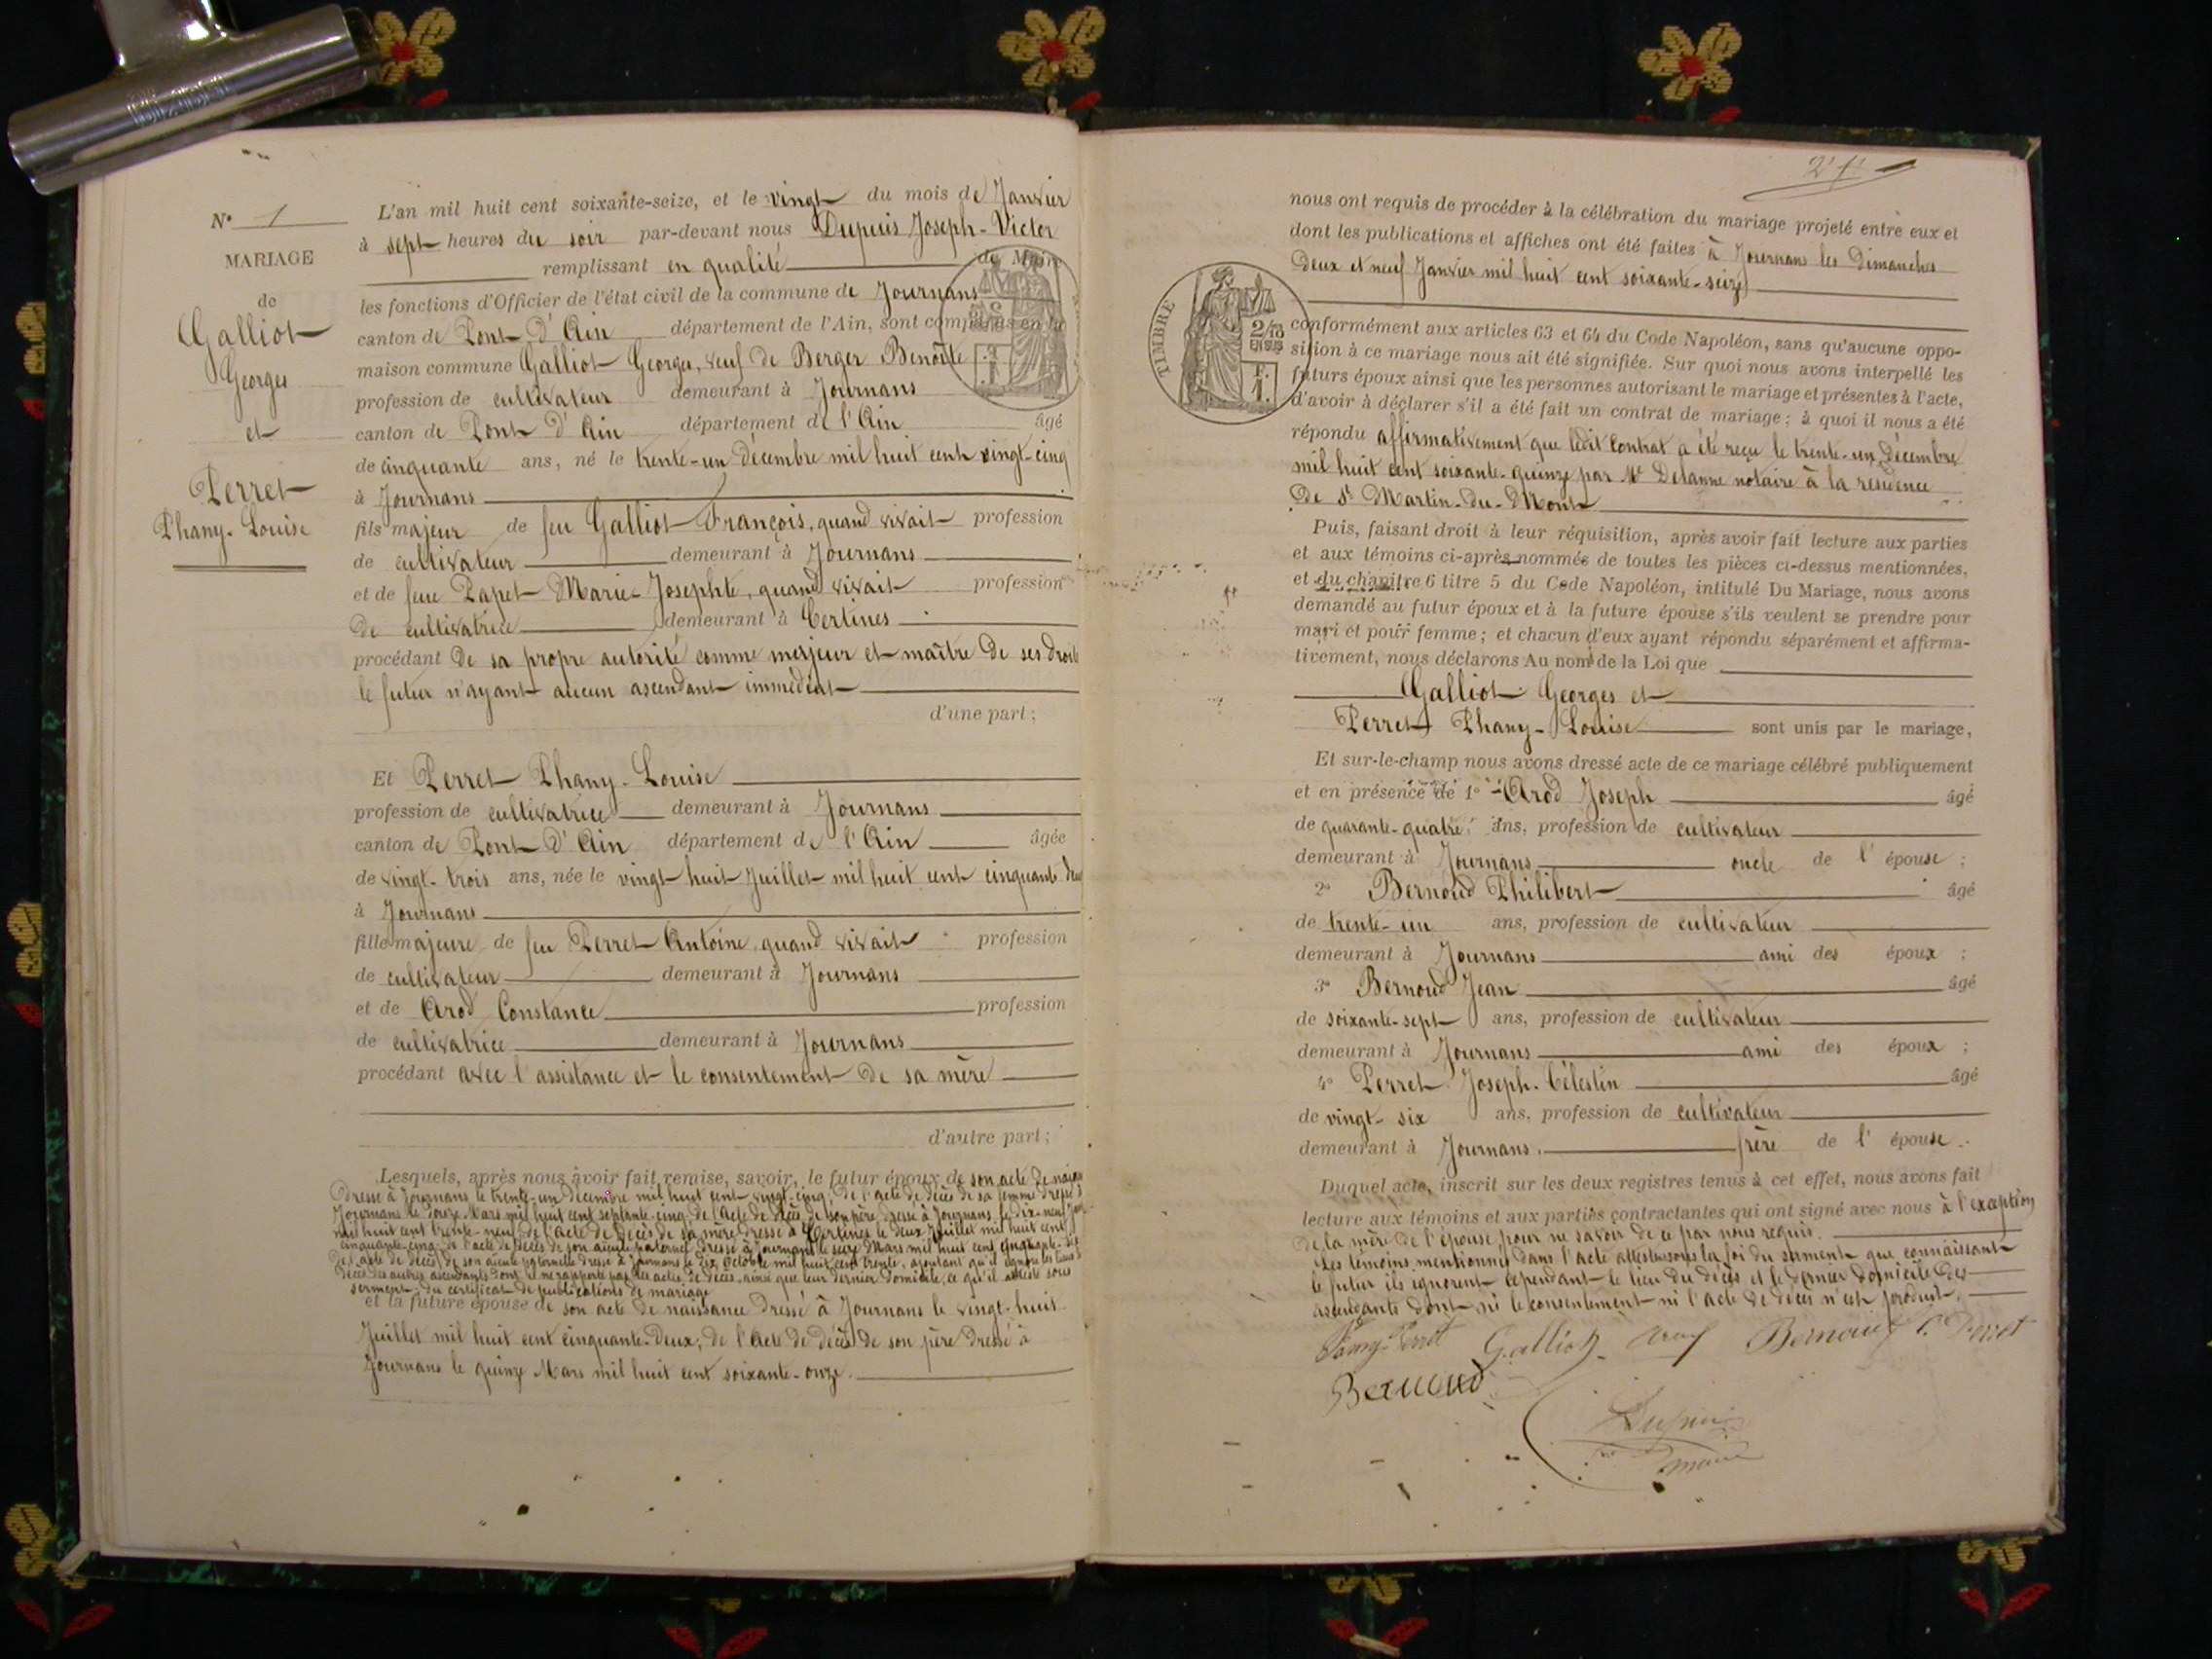 N° 1
MARIAGE
de
Galliot
Georges
et
Perret
Phany-Louise
L'an mil huit cent soixante-seize, et le vingt du mois de Janvier
à sept heures du soir par-devant nous Dupuis Joseph-Victor
remplissant en qualité de Maire
les fonctions d'Officier de l'état civil de la commune de Journans
canton de Pont-D'Ain département de l'Ain, sont comparus en la
maison commune Galliot Georges, veuf de Berger Benoîte
profession de cultivateur demeurant à Journans
canton de Pont D'Ain département de l'Ain âgé
de cinquante ans, né le trente-un Décembre mil huit cent vingt-cinq
à Journans
fils majeur de feu Galliot François, quand vivait profession
de cultivateur demeurant à Journans
et de feue Papet Marie-Josephte, quand vivait profession
De cultivatrice demeurant à Certines
procédant De sa propre autorité comme majeur et maître De ses droits
le futur n'ayant aucun ascendant immédiat
d'une part;
Et Perret Phany-Louise
profession de cultivatrice demeurant à Journans
canton de Pont-D'Ain département de l'Ain âgée
de vingt-trois ans, née le vingt-huit Juillet mil huit cent cinquante deux
à Journans
fille majeure de feu Perret Antoine, quand vivait profession
de cultivateur demeurant à Journans
et de Arod Constance profession
de cultivatrice demeurant à Journans
procédant avec l'assistance et le consentement De sa mère
d'autre part;
Lesquels, après nous avoir fait remise, savoir, le futur époux de son acte de naissance
Dressé à Journans le trente-un Décembre mil huit cent vingt-cinq; De l'acte de décès de sa femme dressé à
Journans le douze Mars mil huit cent septante-cinq; de l'acte de décès de son père dressé à Journans le dix-neuf
mil huit cent trente-neuf; de l'acte de décès de sa mère dressé à Certines le deux Juillet mil huit cent
cinquante-cinq; de l'acte de décès de son aïeul paternel dressé à Journans le seize Mars mil huit cent
De l'acte de décès de son aïeule paternelle dressé à Journans le dix Octobre mil huit cent trente, ajoutant qu'il ignore les lieux
décès des autres ascendants dont il ne rapporte pas les actes de décès, ainsi que leur dernier domicile, ce qu'il atteste sous
serment; du certificat de publications de mariage
et la future épouse de son acte de naissance Dressé à Journans le vingt-huit
Juillet mil huit cent cinquante-Deux; de l'acte de décès de son père Dressé à
Journans le quinze Mars mil huit cent soixante-onze.
nous ont requis de procéder à la célébration du mariage projeté entre eux et
dont les publications et affiches ont été faites à Journans les Dimanches
Deux et neuf Janvier mil huit cent soixante-seize
TIMBRE
2/10
EN SUS
conformément aux articles 63 et 64 du Code Napoléon, sans qu'aucune oppo-
sition à ce mariage nous ait été signifiée. Sur quoi nous avons interpellé les
futurs époux ainsi que les personnes autorisant le mariage et présentes à l'acte,
d'avoir à déclarer s'il a été fait un contrat de mariage; à quoi il nous a été
répondu affirmativement que ledit contrat a été reçu le trente-un Décembre
mil huit cent soixante-quinze par Me Delanne notaire à la résidence
De St Martin-du-Mont
Puis, faisant droit à leur réquisition, après avoir fait lecture aux parties
et aux témoins ci-après nommés de toutes les pièces ci-dessus mentionnées,
et du chapitre 6 titre 5 du Code Napoléon, intitulé Du Mariage, nous avons
demandé au futur époux et à la future épouse s'ils veulent se prendre pour
mari et pour femme; et chacun d'eux ayant répondu séparément et affirma-
tivement, nous déclarons Au nom de la Loi que
Galliot Georges et
Perret Phany-Louise sont unis par le mariage,
Et sur-le-champ nous avons dressé acte de ce mariage célébré publiquement
et en présence de 1° Arod Joseph âgé
de quarante-quatre ans, profession de cultivateur
demeurant à Journans oncle de l'épouse;
2° Bernoud Philibert âgé
de trente-un ans, profession de cultivateur
demeurant à Journans ami des époux;
3° Bernoud Jean âgé
de soixante-sept ans, profession de cultivateur
demeurant à Journans ami des époux;
4° Perret Joseph-Célestin âgé
de vingt-six ans, profession de cultivateur
demeurant à Journans. frère de l'épouse.
Duquel acte, inscrit sur les deux registres tenus à cet effet, nous avons fait
lecture aux témoins et aux parties contractantes qui ont signé avec nous à l'exception
De la mère de l'épouse pour ne savoir de ce par nous requis.
Les témoins mentionnés dans l'acte attestent sous la foi du serment que connaissant
le futur ils ignorent cependant le lieu Du décès et le dernier domicile Des
ascendants dont ni le consentement ni l'acte De décès n'est produit.
Fany Perret Galliot Arod Bernoud C. Perret
Bernoud
Dupuis
maire